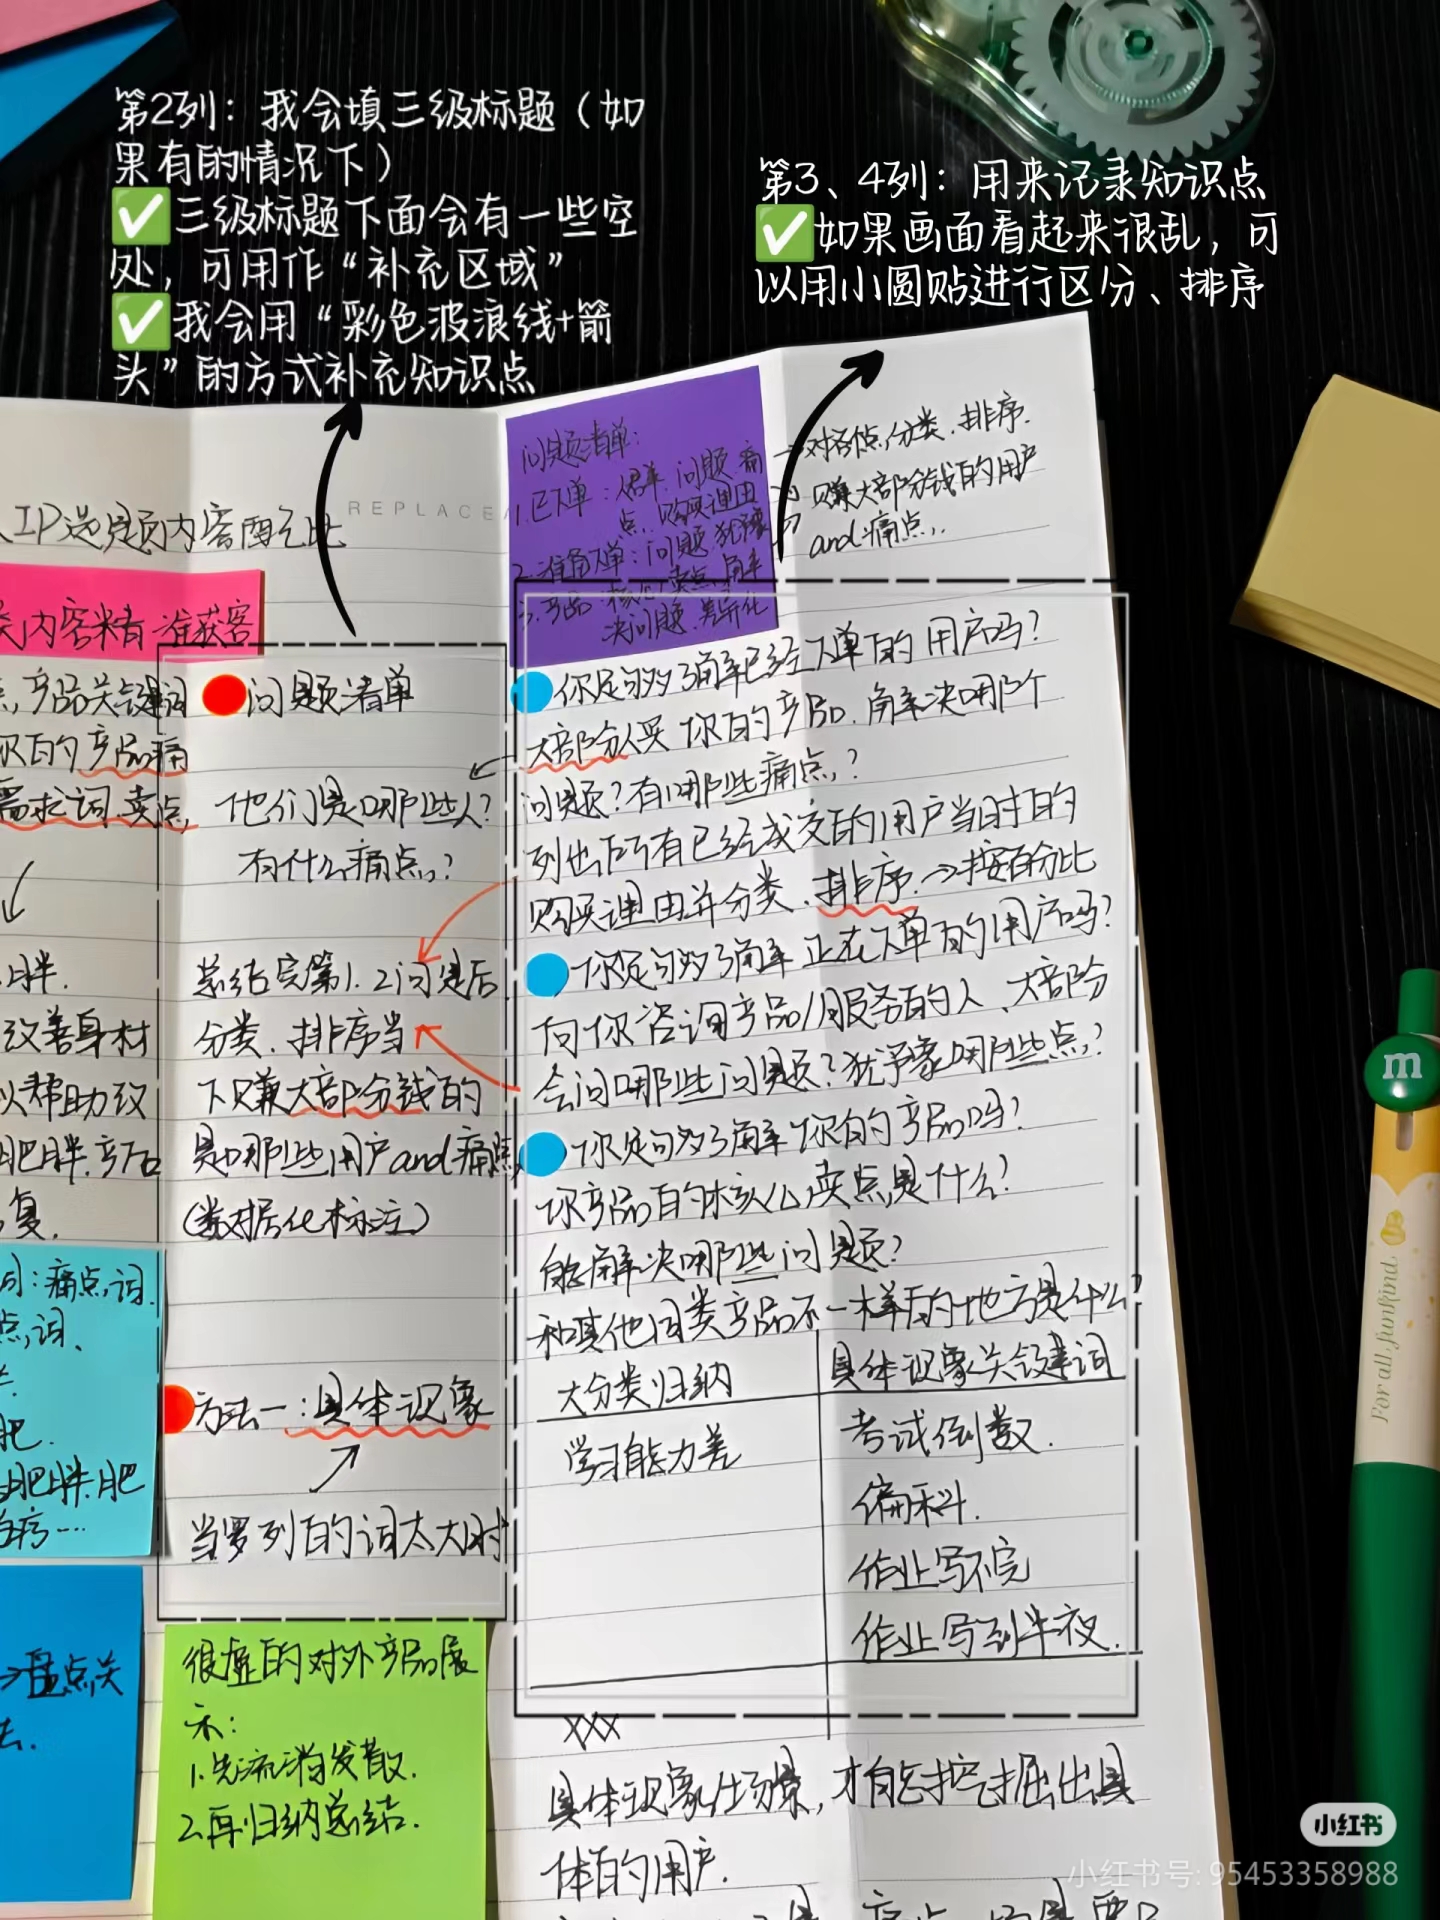 第2列：我会填三级标题（如
果有的情况下）
✅三级标题下面会有一些空
处，可用作“补充区域”
✅我会用“彩色波浪线+箭
头”的方式补充知识点
第3、4列：用来记录知识点
✅如果画面看起来很乱，可
以用小圆贴进行区分、排序
IP选题内容配比
REPLACEA
类内容精准获客
点，产品关键词
你的产品痛
需求词.卖点
胖.
改善身材
以帮助改
肥胖.产后
复.
词：痛点词.
点词、
肥.
肥胖.肥
→盘点关
问题清单
他们是哪些人？
有什么痛点？
总结完第1.2问题后
分类.排序当
下只赚大部分钱的
是哪些用户and痛点
（数据化标注）
方法一：具体现象
当罗列的词太大时
很虚的对外产品展
示：
1.先流淌发散.
2.再归纳总结.
问题清单：
1.已下单：人群.问题.痛
点.购买理由
2.准备下单：问题.犹豫
3.产品：核心卖点.解
决问题.差异化
→对各点分类.排序.
只赚大部分钱的用户
and痛点.
你足够了解已经下单的用户吗？
大部分人买你的产品.解决哪个
问题？有哪些痛点？
列出所有已经成交的用户当时的
购买理由并分类.排序.→按百分比
你足够了解正在下单的用户吗？
向你咨询产品/服务的人、大部分
会问哪些问题？犹豫哪些点？
你足够了解你的产品吗？
你产品的核心卖点是什么？
能解决哪些问题？
和其他同类产品不一样的地方是什么？
大分类归纳 具体现象关键词
学习能力差 考试倒数.
偏科.
作业写不完
作业写到半夜.
XXX
具体现象/场景，才能挖掘出具
体的用户.
m
For all funkind
小红书
小红书号: 95453358988